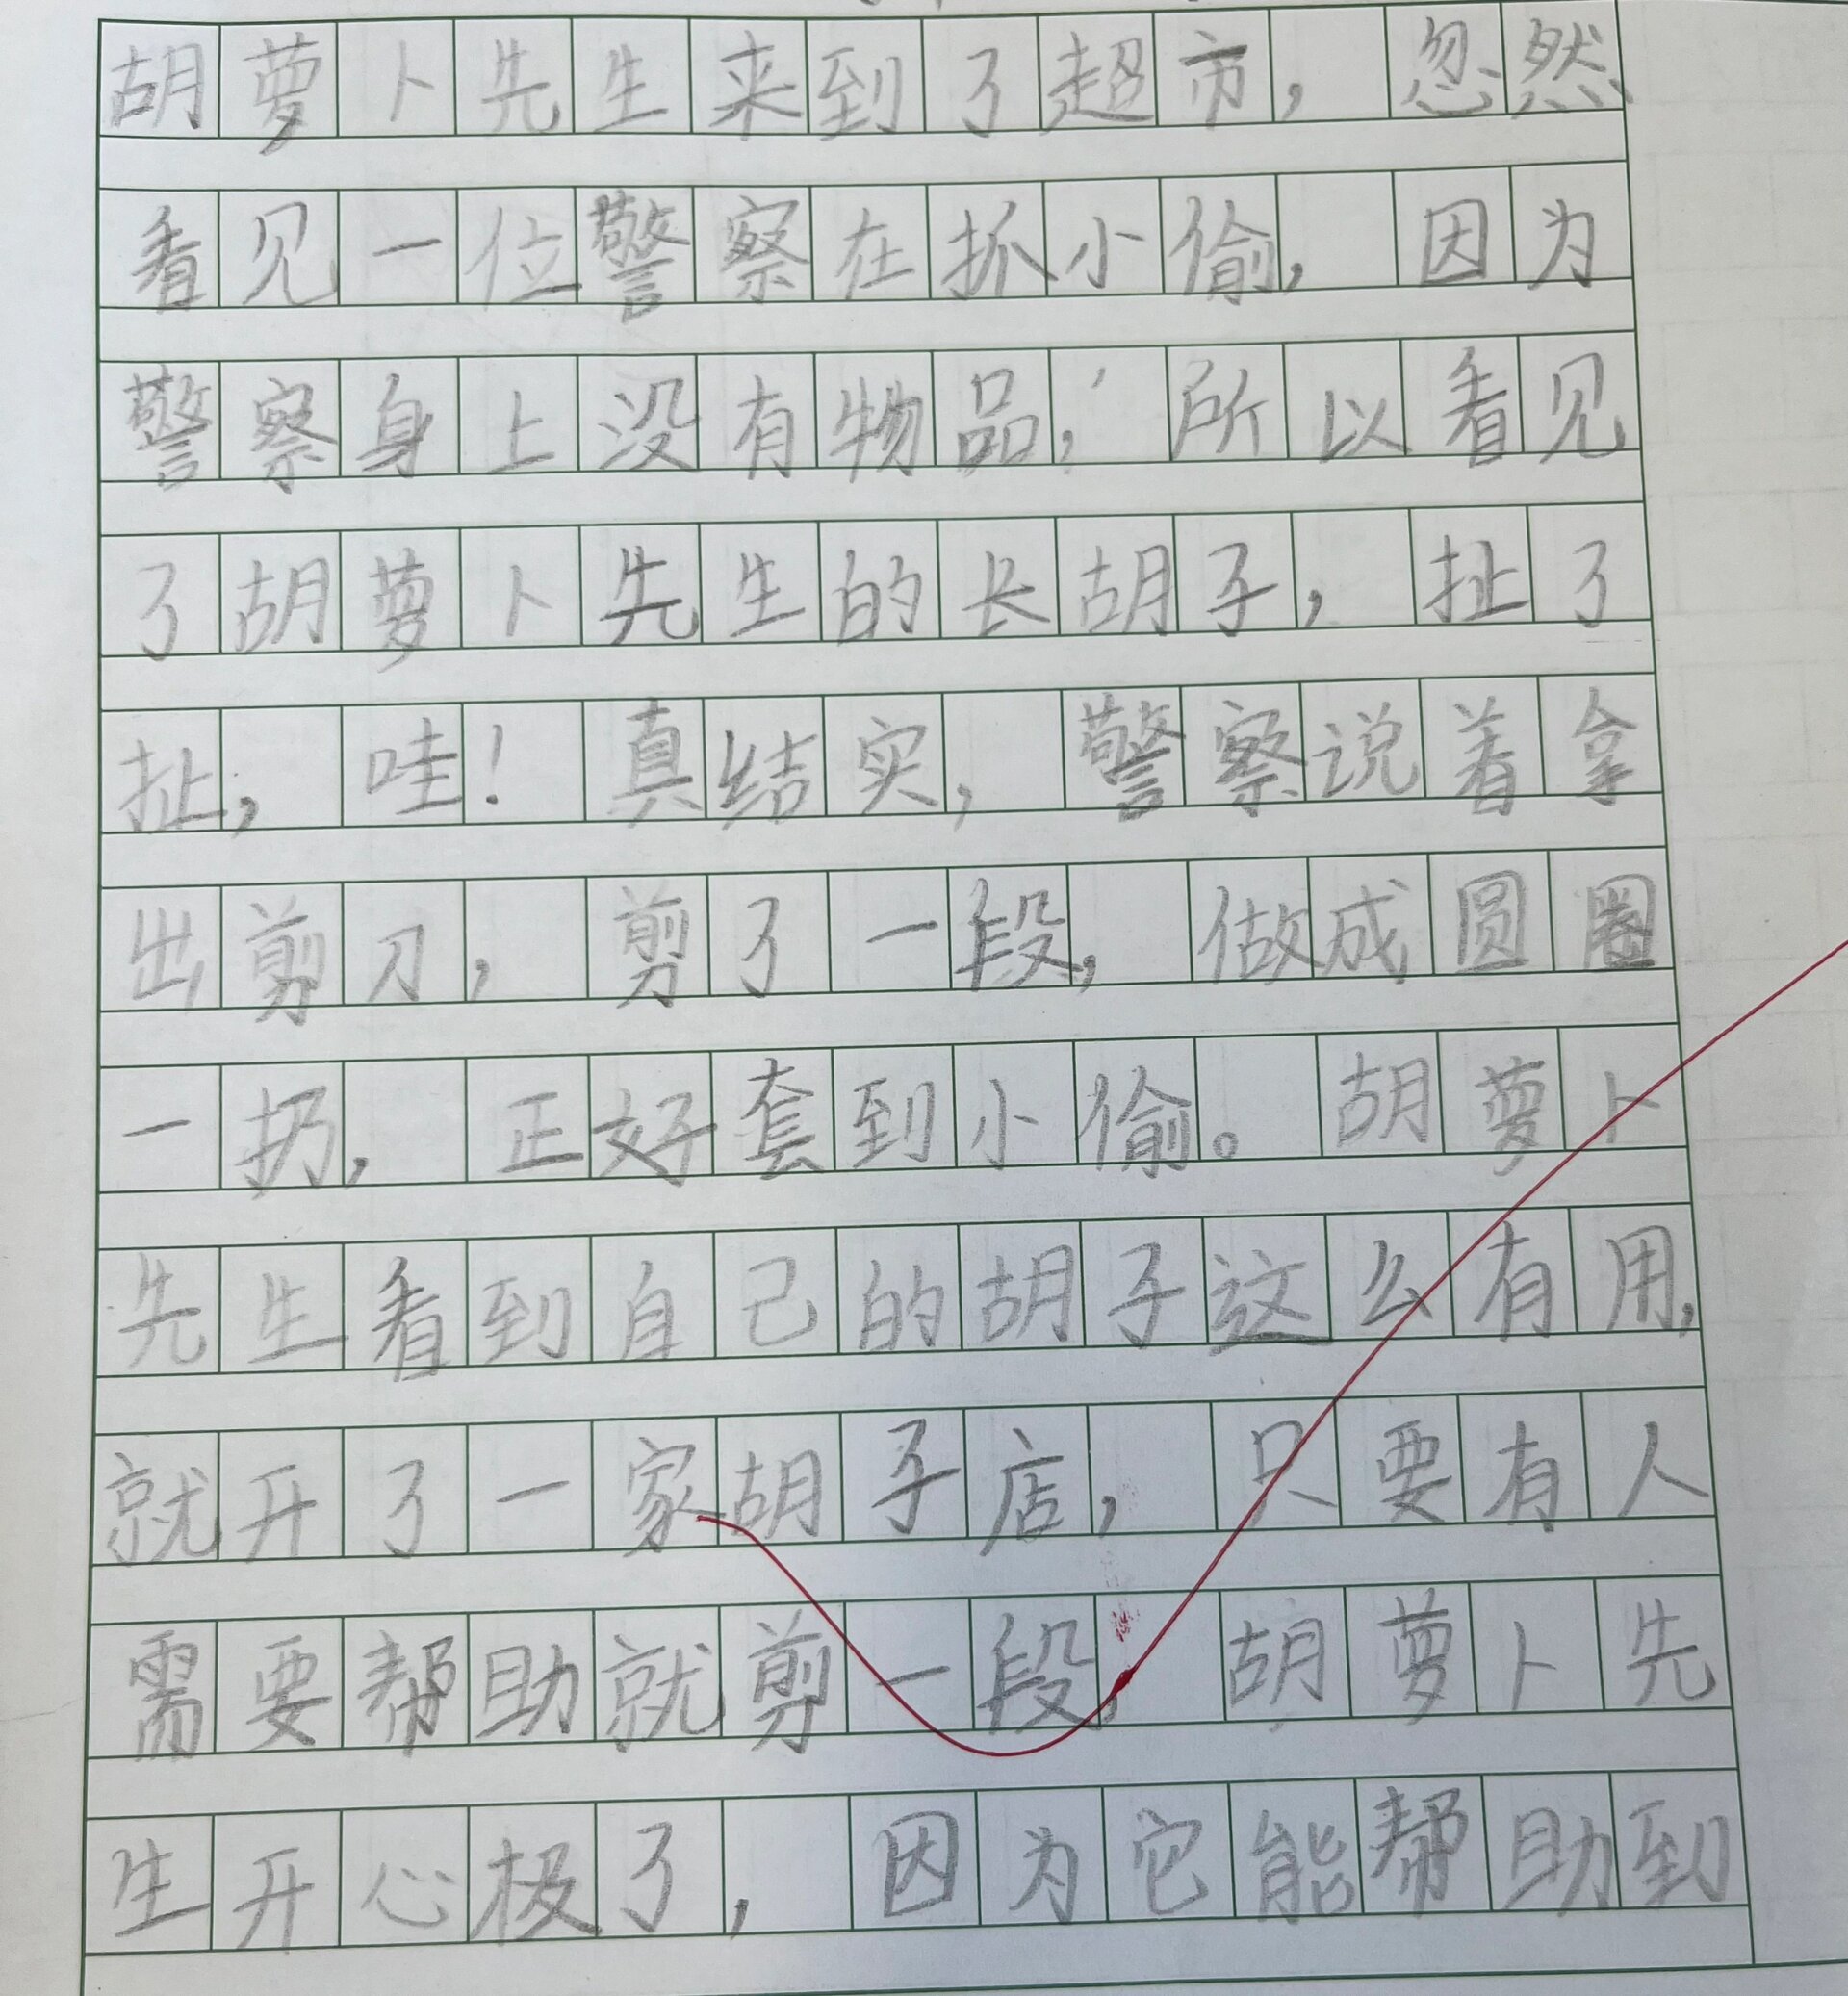 胡萝卜先生来到了超市，忽然
看见一位警察在抓小偷，因为
警察身上没有物品，所以看见
了胡萝卜先生的长胡子，扯了
扯，哇！真结实，警察说着拿
出剪刀，剪了一段，做成圆圈
一扔，正好套到小偷。胡萝卜
先生看到自己的胡子这么有用，
就开了一家胡子店，只要有人
需要帮助就剪一段，胡萝卜先
生开心极了，因为它能帮助到